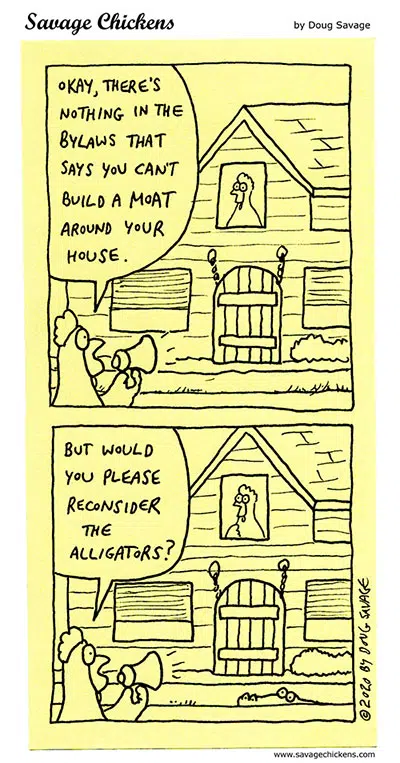 Savage Chickens
by Doug Savage
OKAY, THERE'S
NOTHING IN THE
BYLAWS THAT
SAYS YOU CAN'T
BUILD A MOAT
AROUND YOUR
HOUSE.
BUT WOULD
YOU PLEASE
RECONSIDER
THE
ALLIGATORS?
©2020 BY DOUG SAVAGE
www.savagechickens.com